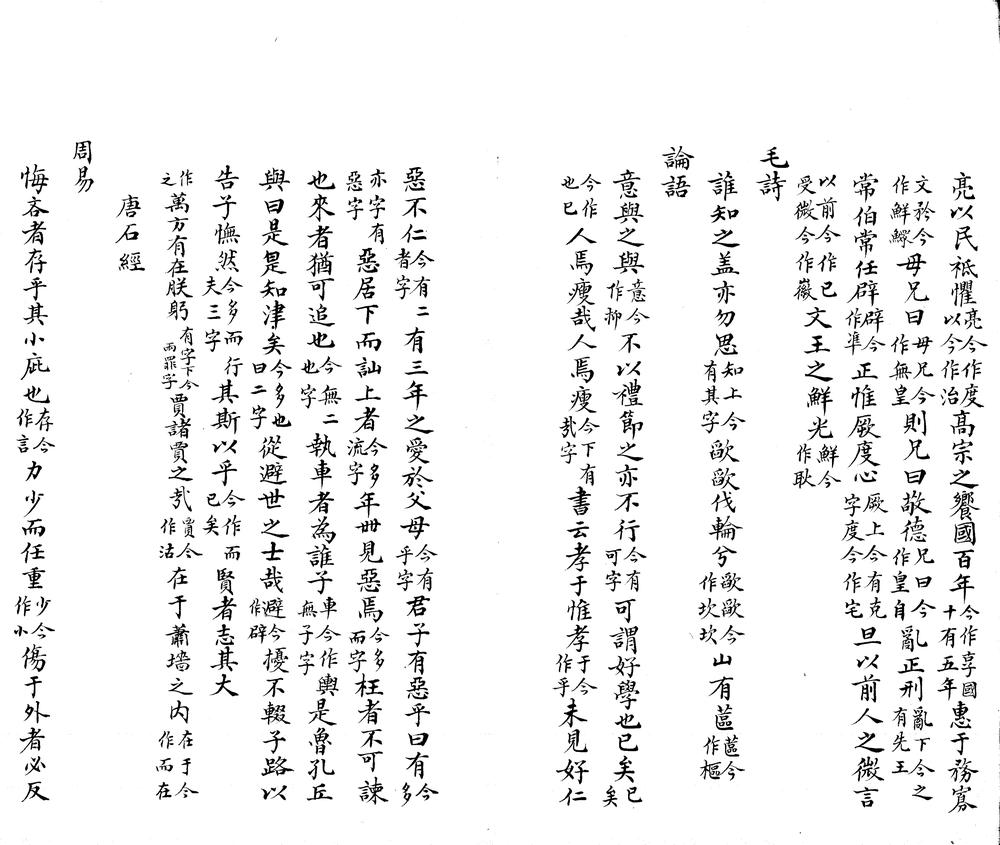 亮以民祗懼亮今作度以今作治高宗之饗國百年今作享國十有五年惠于務寡
文矜今作鮮鰥毋兄曰毋兄今作無皇則兄曰敬德兄曰今作皇自亂正刑亂下今之有先王
常伯常任辟辟今作準正惟厥度心厥上今有克字度今作宅旦以前人之微言
以前今作已受微今作徽文王之鮮光鮮今作耿
毛詩
誰知之盖亦勿思知上今有其字歐歐伐輪兮歐歐今作坎坎山有蓲蓲今作樞
論語
意與之與意今作抑不以禮節之亦不行今有可字可謂好學也已矣已矣
今作也已人焉瘦哉人焉瘦今下有哉字書云孝于惟孝于今作乎未見好仁
惡不仁今有者字二有三年之愛於父母今有乎字君子有惡乎曰有今多
亦字有惡字惡居下而訕上者今多流字年卌見惡焉今多而字枉者不可諫
也來者猶可追也今無二也字執車者為誰子車今作輿無子字是魯孔丘
與曰是是知津矣今多也曰二字從避世之士哉避今作辟櫌不輟子路以
告子憮然今多而行夫三字其斯以乎今作而已矣賢者志其大
作之萬方有在朕躬有字下今兩罪字賈諸賈之哉賈今作沽在于蕭墻之内在于今作而在
唐石經
周易
悔吝者存乎其小疵也存今作言力少而任重少今作小傷于外者必反